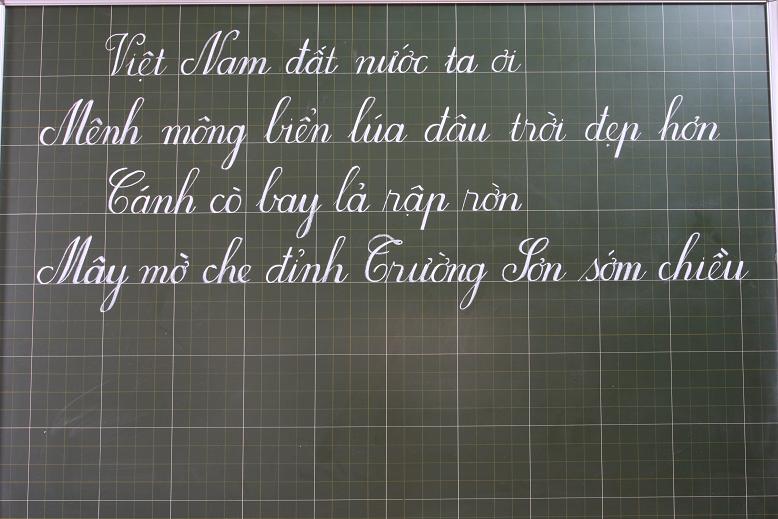 Việt Nam đất nước ta ơi
Mênh mông biển lúa đâu trời đẹp hơn
Cánh cò bay lả rập rờn
Mây mờ che đỉnh Trường Sơn sớm chiều